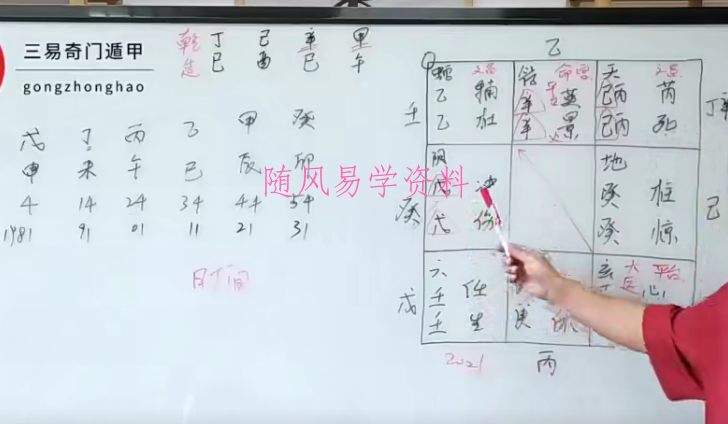 三易奇门遁甲
gongzhonghao
乾造 丁 己 辛 甲
巳 酉 巳 午
戊 丁 丙 乙 甲 癸
申 未 午 巳 辰 卯
4 14 24 34 44 54
1981 91 01 11 21 31
随风易学资料
乙
壬
癸
己
戊
丙
乙 辅
乙 杜
辛 英
辛 景
天
己丙 芮
己丙 死
阴
戊 冲
戊 伤
地
癸 柱
癸 惊
六
壬 任
壬 生
玄
心
2021